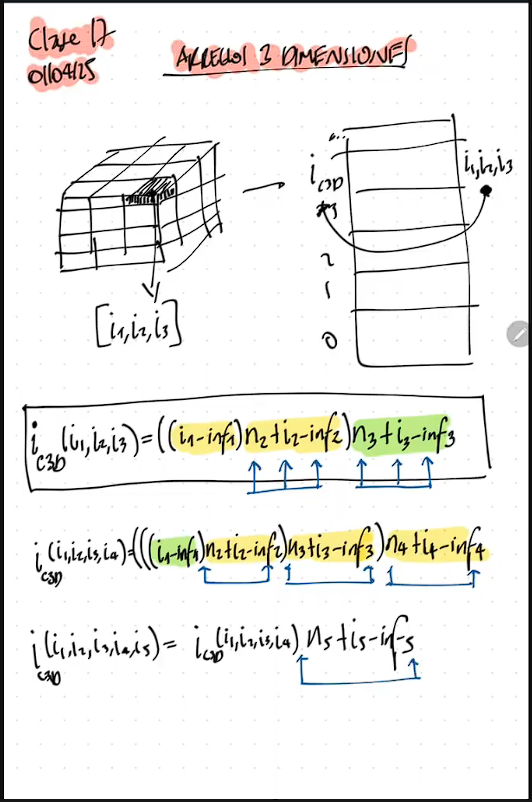 Clase 17
01/04/25
ARREGLOS 3 DIMENSIONES
...
i C3D
i1,i2,i3
3
2
1
0
[i1,i2,i3]
i C3D (i1,i2,i3)=((i1-inf1)n2+i2-inf2)n3+i3-inf3
i C3D (i1,i2,i3,i4)=(((i1-inf1)n2+i2-inf2)n3+i3-inf3)n4+i4-inf4
i C3D (i1,i2,i3,i4,i5)= i C3D (i1,i2,i3,i4) n5+i5-inf5